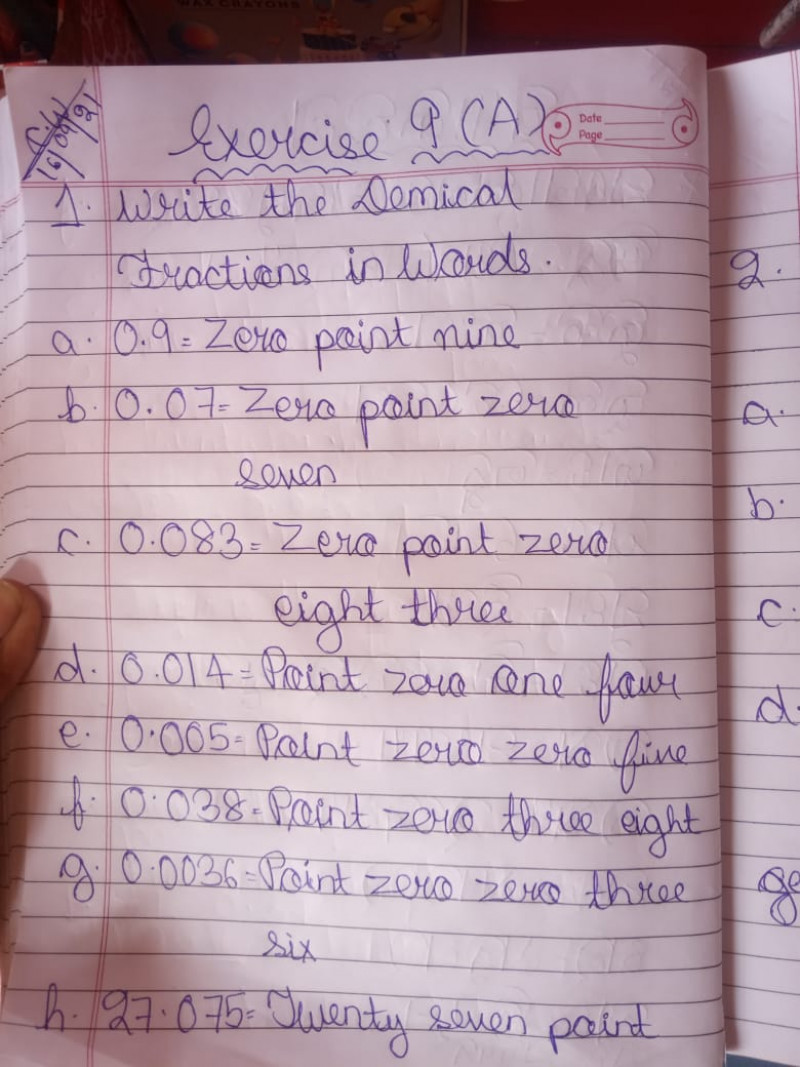 WAX CRAYONS
16/09/21
Exercise 9 (A)
Date
Page
1. Write the Demical
Fractions in Words.
a. 0.9 = Zero point nine
b. 0.07 = Zero point zero
seven
c. 0.083 = Zero point zero
eight three
d. 0.014 = Point zero one four
e. 0.005 = Point zero zero five
f. 0.038 = Point zero three eight
g. 0.0036 = Point zero zero three
six
h. 27.075 = Twenty seven point
2.
a.
b.
c.
d.
ge